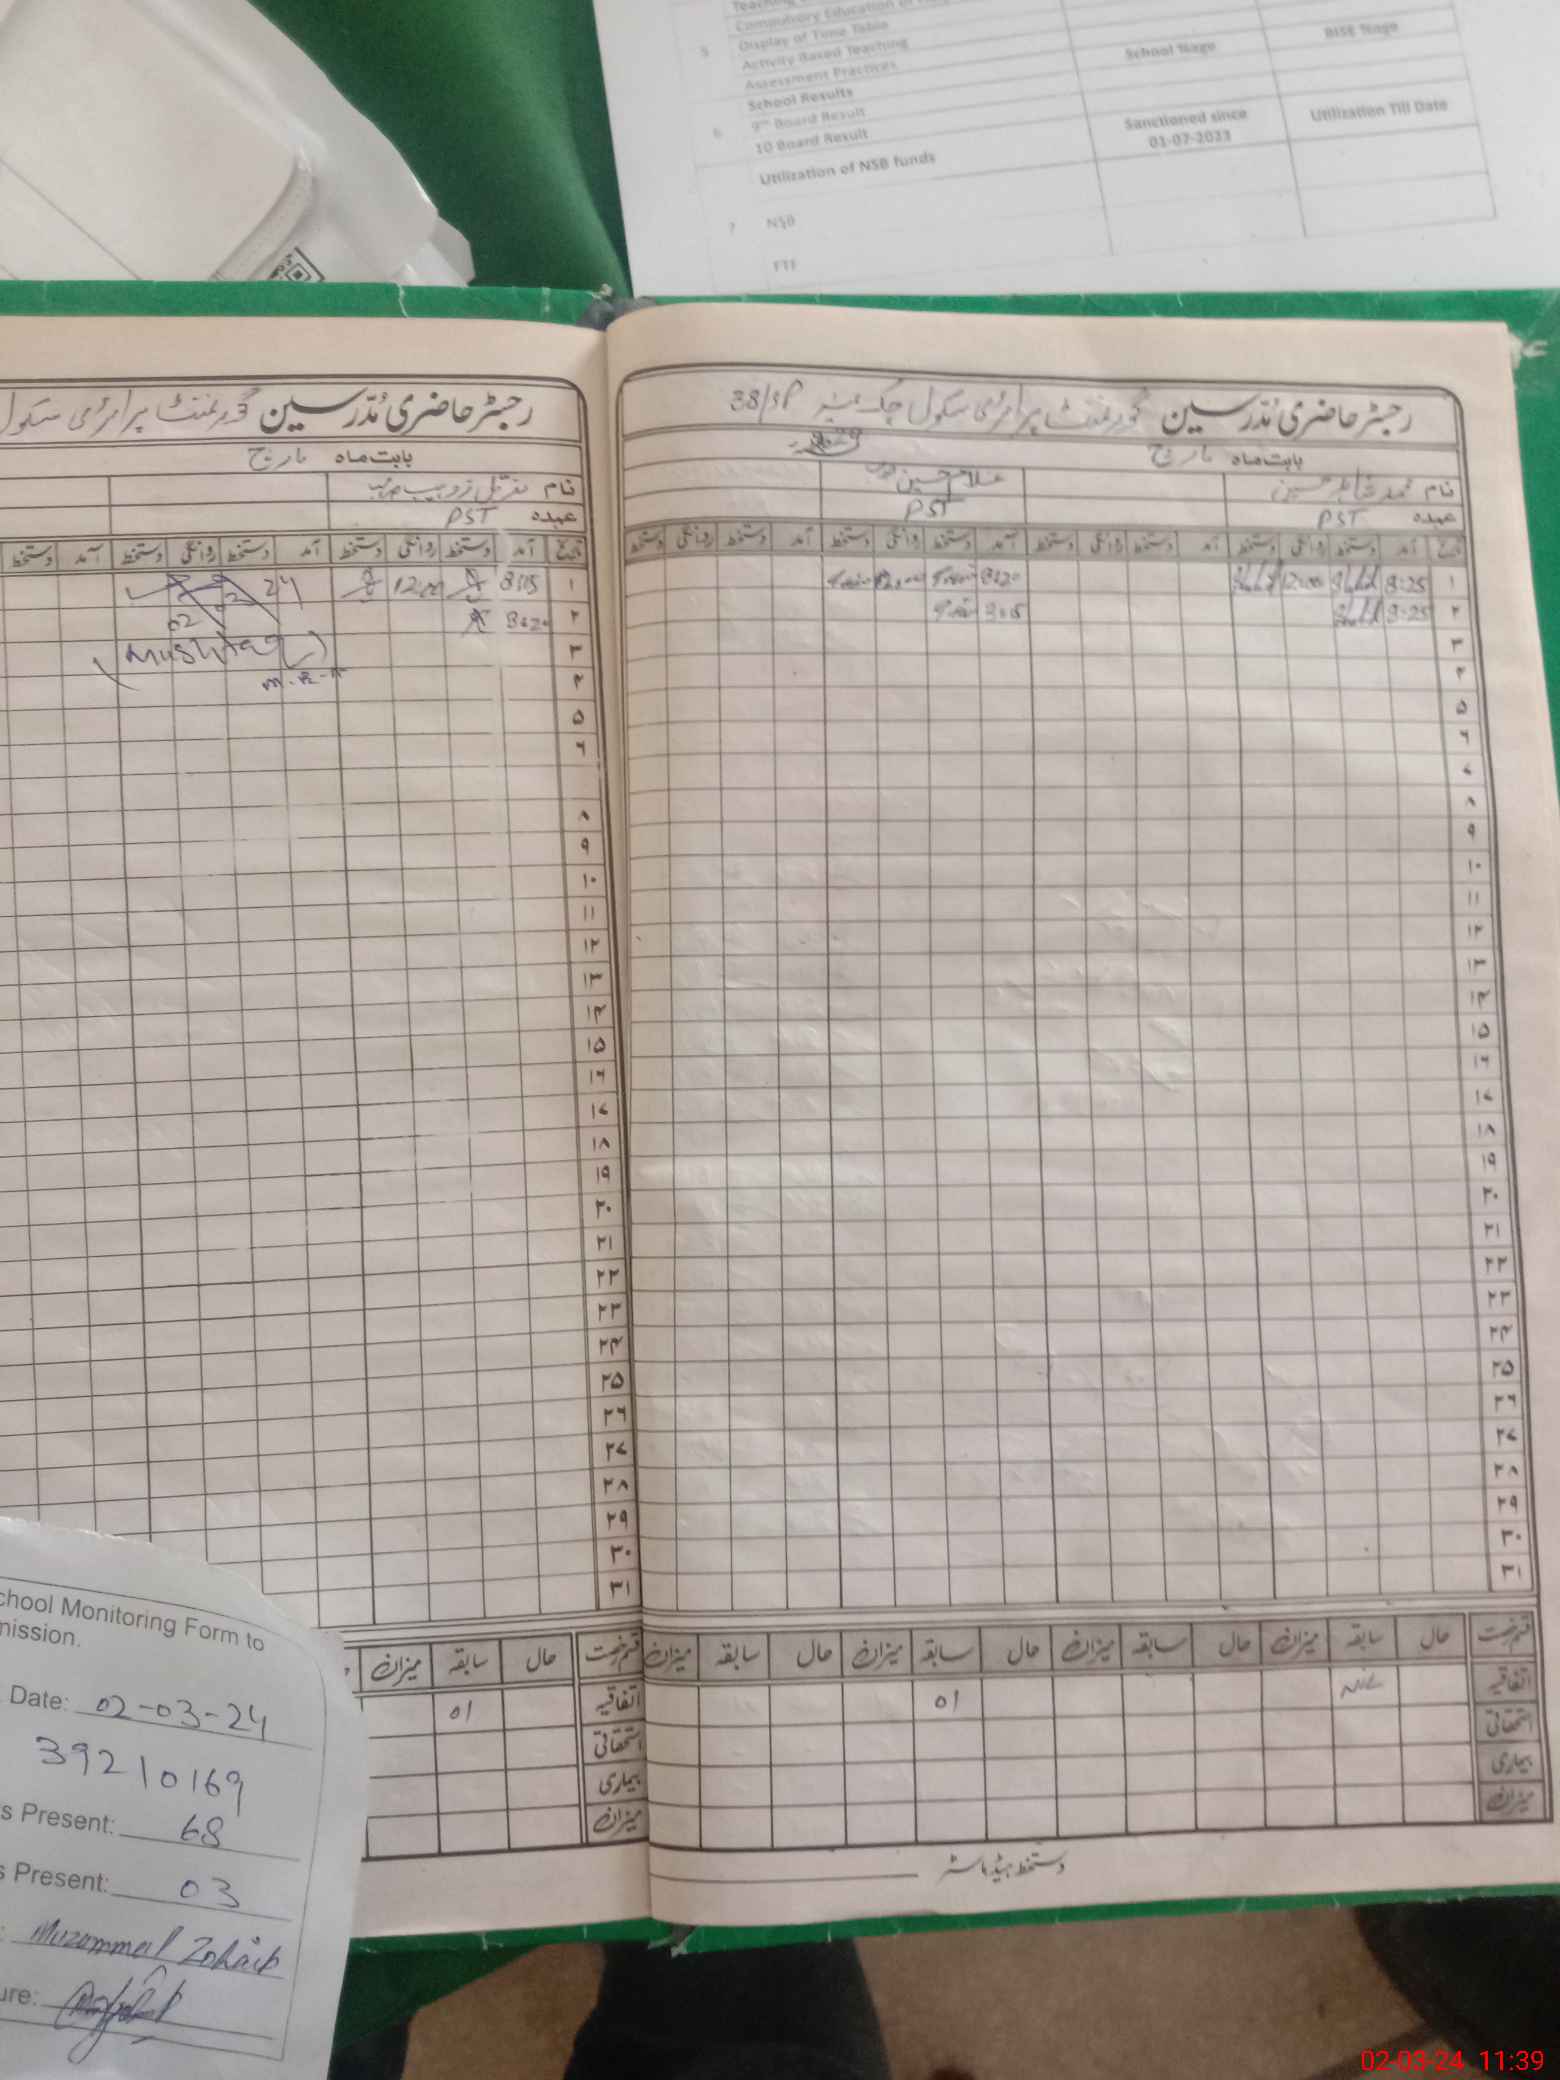 Display of Time Table
5
Activity Based Teaching
Assessment Practices
School %age
BISE %age
School Results
6
9th Board Result
10 Board Result
Sanctioned since
01-07-2023
Utilization Till Date
Utilization of NSB funds
7
NSB
FTF
رجسٹر حاضری مُدّرسین گورنمنٹ پرائمری سکول چک نمبر 38/SP
بابت ماہ مارچ
نام محمد شاہد حسین
غلام حسین
عہدہ PST
PST
تاریخ آمد دستخط روانگی دستخط آمد دستخط روانگی دستخط آمد دستخط روانگی دستخط آمد دستخط روانگی دستخط
۱ 8:25 Shahid 12:00 Shahid 8:20
۲ 8:25 Shahid 8:15
۳
۴
۵
۶
۷
۸
۹
۱۰
۱۱
۱۲
۱۳
۱۴
۱۵
۱۶
۱۷
۱۸
۱۹
۲۰
۲۱
۲۲
۲۳
۲۴
۲۵
۲۶
۲۷
۲۸
۲۹
۳۰
۳۱
قسم رخصت حال سابقہ میزان حال سابقہ میزان حال سابقہ میزان حال سابقہ میزان
اتفاقیہ 01
استحقاقی
بیماری
میزان
دستخط ہیڈماسٹر
رجسٹر حاضری مُدّرسین گورنمنٹ پرائمری سکول
بابت ماہ مارچ
نام
عہدہ PST
تاریخ آمد دستخط روانگی دستخط آمد دستخط روانگی دستخط آمد دستخط
۱ 8:15 12:00
۲ 8:20
02 03 24
۳
(Mushtaq)
۴
۵
۶
۸
۹
۱۰
۱۱
۱۲
۱۳
۱۴
۱۵
۱۶
۱۷
۱۸
۱۹
۲۰
۲۱
۲۲
۲۳
۲۴
۲۵
۲۶
۲۷
۲۸
۲۹
۳۰
۳۱
قسم رخصت حال سابقہ میزان
اتفاقیہ 01
استحقاقی
بیماری
میزان
chool Monitoring Form to
mission.
Date: 02-03-24
39210169
s Present: 68
s Present: 03
: Muzammal Zohaib
ure:
02-03-24 11:39